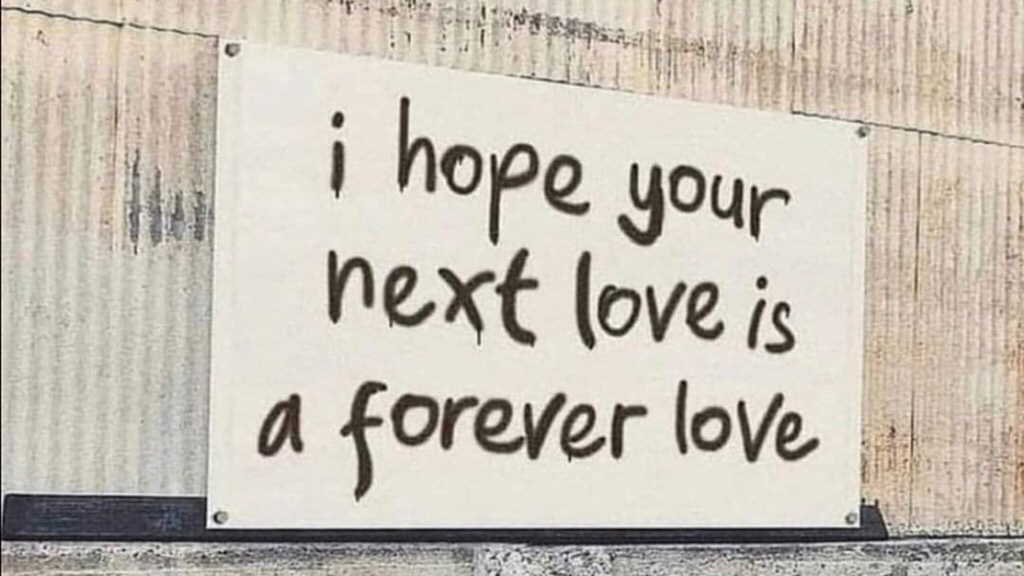 i hope your
next love is
a forever love